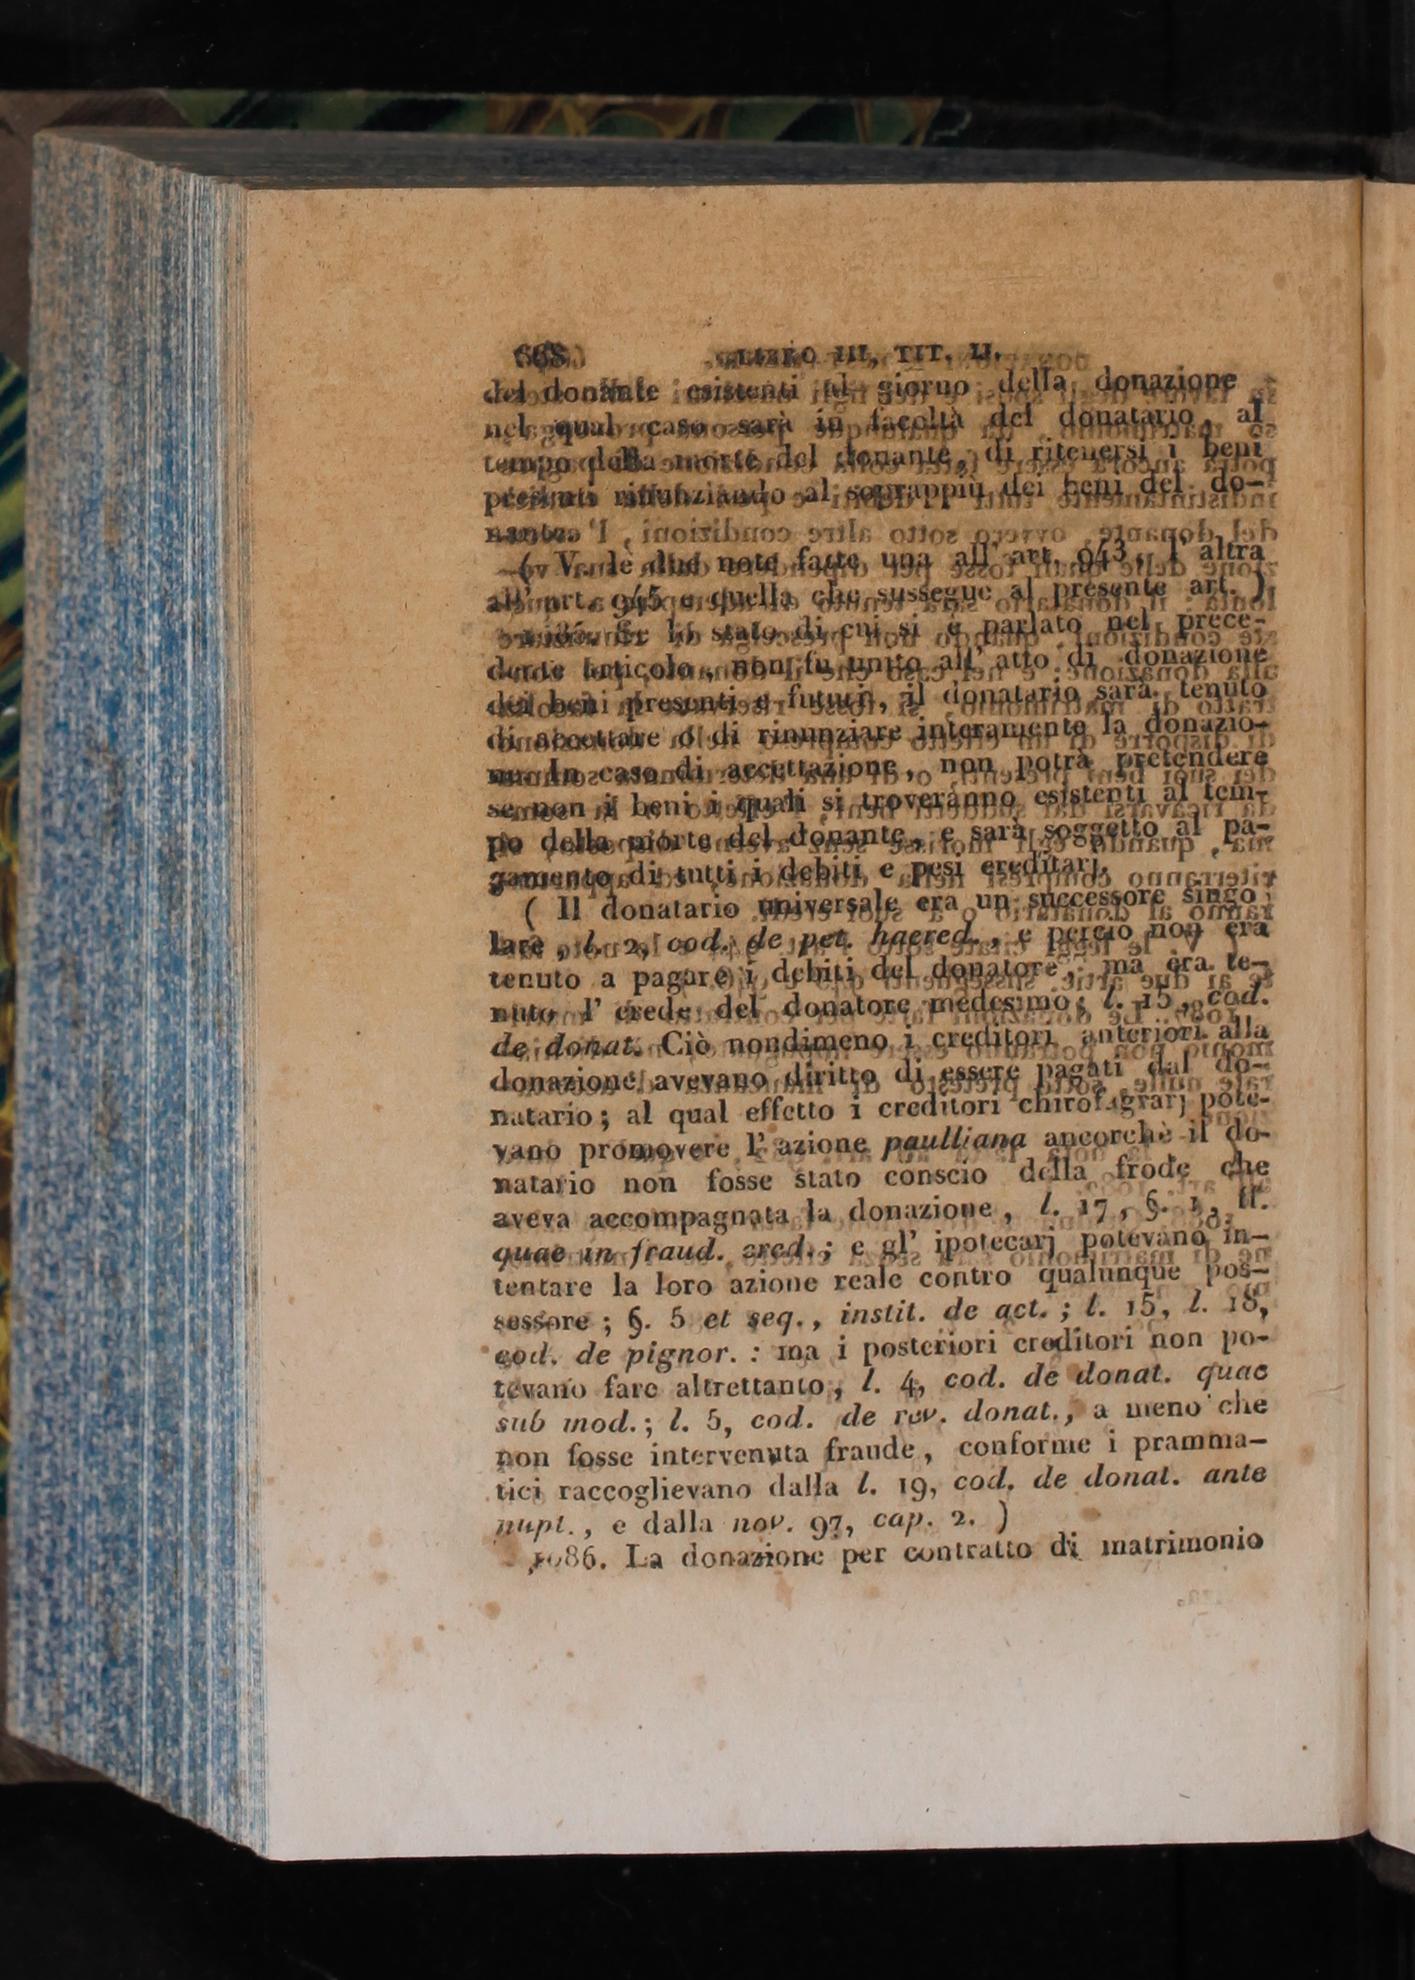 668 LIBRO III, TIT. II.
del donante esistenti al giorno della donazione
nel qual caso sarà in facoltà del donatario, al
tempo della morte del donante, di ritenersi i beni
presenti rinunziando al soprappiù dei beni del do-
nante.
( V. le note fatte una all' art. 943, l' altra
all' art. 945 e quella che sussegue al presente art. )
Se lo stato di cui si è parlato nel prece-
dente articolo, non fu unito all' atto di donazione
dei beni presenti e futuri, il donatario sarà tenuto
di accettare o di rinunziare interamente la donazio-
ne. In caso di accettazione, non potrà pretendere
se non i beni i quali si troveranno esistenti al tem-
po della morte del donante, e sarà soggetto al pa-
gamento di tutti i debiti e pesi ereditarj.
( Il donatario universale era un successore singo-
lare, l. 2, cod. de pet. haered., e perciò non era
tenuto a pagare i debiti del donatore, ma era te-
nuto l' erede del donatore medesimo; l. 15, cod.
de donat. Ciò nondimeno i creditori anteriori alla
donazione avevano diritto di essere pagati dal do-
natario; al qual effetto i creditori chirofagrarj pote-
vano promovere l' azione paulliana ancorchè il do-
natario non fosse stato conscio della frode che
aveva accompagnata la donazione, l. 17, §. 1, ff.
quae in fraud. cred.; e gl' ipotecarj potevano in-
tentare la loro azione reale contro qualunque pos-
sessore; §. 5 et seq., instit. de act.; l. 15, l. 18,
cod. de pignor. : ma i posteriori creditori non po-
tevano fare altrettanto, l. 4, cod. de donat. quae
sub mod.; l. 5, cod. de rev. donat., a meno che
non fosse intervenuta fraude, conforme i pramma-
tici raccoglievano dalla l. 19, cod. de donat. ante
nupt., e dalla nov. 97, cap. 2. )
1086. La donazione per contratto di matrimonio